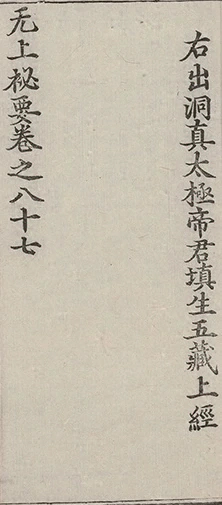 右出洞真太極帝君填生五藏上經
无上祕要卷之八十七